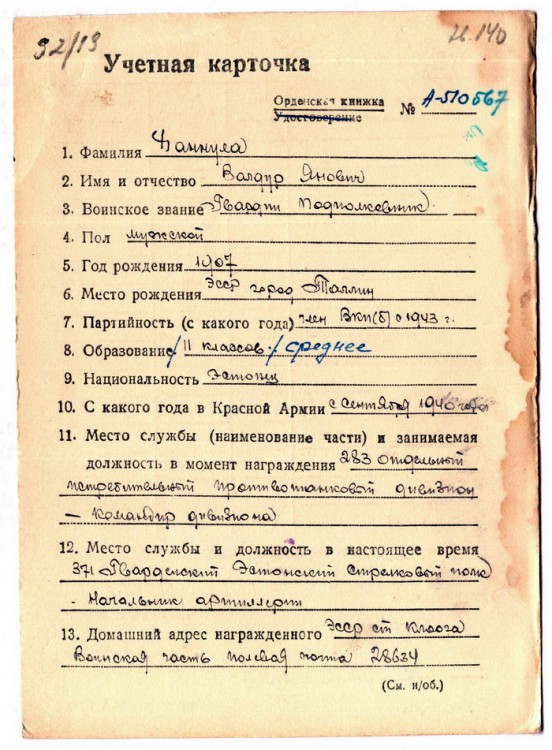 32/19
Учетная карточка
Орденская книжка
Удостоверение
№ А-510567
1. Фамилия Ваннула
2. Имя и отчество Валдур Янович
3. Воинское звание Гвардии Подполковник
4. Пол мужской
5. Год рождения 1907
6. Место рождения ЭССР город Таллин
7. Партийность (с какого года) член ВКП(б) с 1943 г.
8. Образование / 11 классов / среднее
9. Национальность Эстонец
10. С какого года в Красной Армии с сентября 1940 года
11. Место службы (наименование части) и занимаемая
должность в момент награждения 283 отдельный
истребительный противотанковый дивизион
– Командир дивизиона
12. Место службы и должность в настоящее время
371 Гвардейский Эстонский стрелковый полк
- Начальник артиллерии
13. Домашний адрес награжденного ЭССР ст Клоога
Воинская часть полевая почта 28634
(См. н/об.)